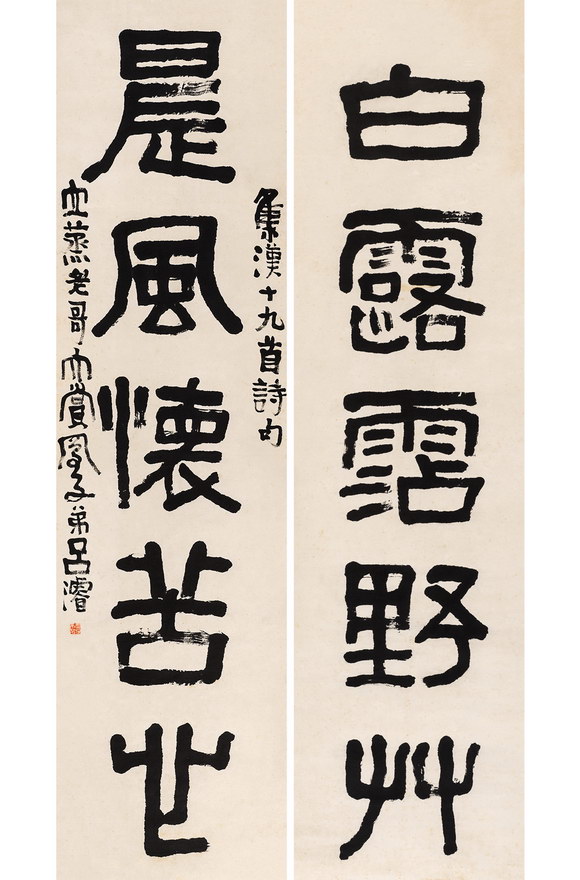 白露霑野艸
集漢十九首詩句
晨風懷苦心
立蒸老哥大賞鳳子弟呂濬